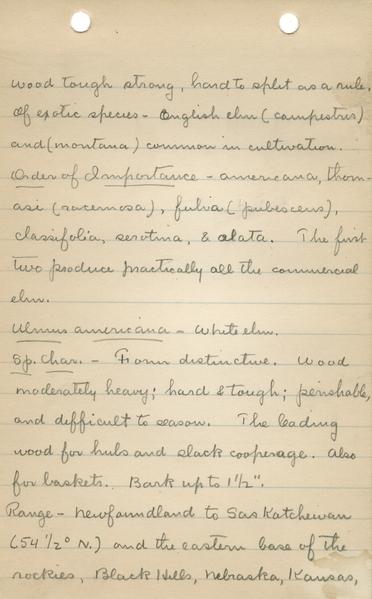 wood tough strong, hard to split as a rule.
Of exotic species - English elm (campestris)
and (montana) common in cultivation.
Order of Importance - americana, thom-
asi (racemosa), fulva (pubescens),
classifolia, serotina, & alata. The first
two produce practically all the commercial
elm.
Ulmus americana - White elm.
Sp. Char. - Form distinctive. Wood
moderately heavy; hard & tough; perishable,
and difficult to season. The leading
wood for hubs and slack cooperage. Also
for baskets. Bark up to 1 1/2".
Range - Newfoundland to Saskatchewan
(54 1/2° N.) and the eastern base of the
rockies, Black Hills, Nebraska, Kansas,